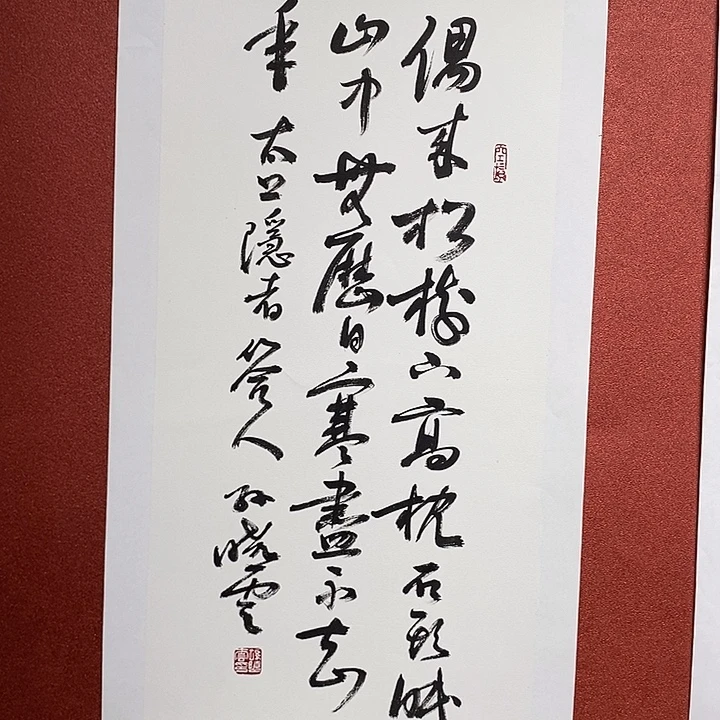 偶來松樹下高枕石頭眠
山中無歷日寒盡不知
年 太上隱者答人 孫曉雲